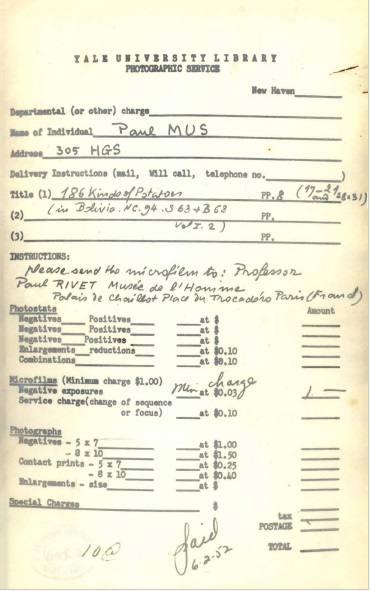 YALE UNIVERSITY LIBRARY
PHOTOGRAPHIC SERVICE
New Haven
Departmental (or other) charge
Name of Individual Paul MUS
Address 305 HGS
Delivery Instructions (mail, Will call, telephone no. )
Title (1) 186 Kinds of Potatoes PP. 8 (17-21 and
(2) (in Bolivia. NC. 94. S63+B68 PP.
Vol I. 2)
(3) PP.
INSTRUCTIONS:
please send the microfilm to: Professor
Paul RIVET Musée de l'Homme
Palais de Chaillot Place du Trocadéro Paris (France)
Photostats Amount
Negatives Positives at $
Negatives Positives at $
Negatives Positives at $
Enlargements reductions at $0.10
Combinations at $0.10
Microfilms (Minimum charge $1.00) Min charge
Negative exposures at $0.03 1 —
Service charge(change of sequence
or focus) at $0.10
Photographs
Negatives - 5 x 7 at $1.00
- 8 x 10 at $1.50
Contact prints - 5 x 7 at $0.25
- 8 x 10 at $0.40
Enlargements - size at $
Special Charges $
tax
POSTAGE
TOTAL
Paid
6-2-52